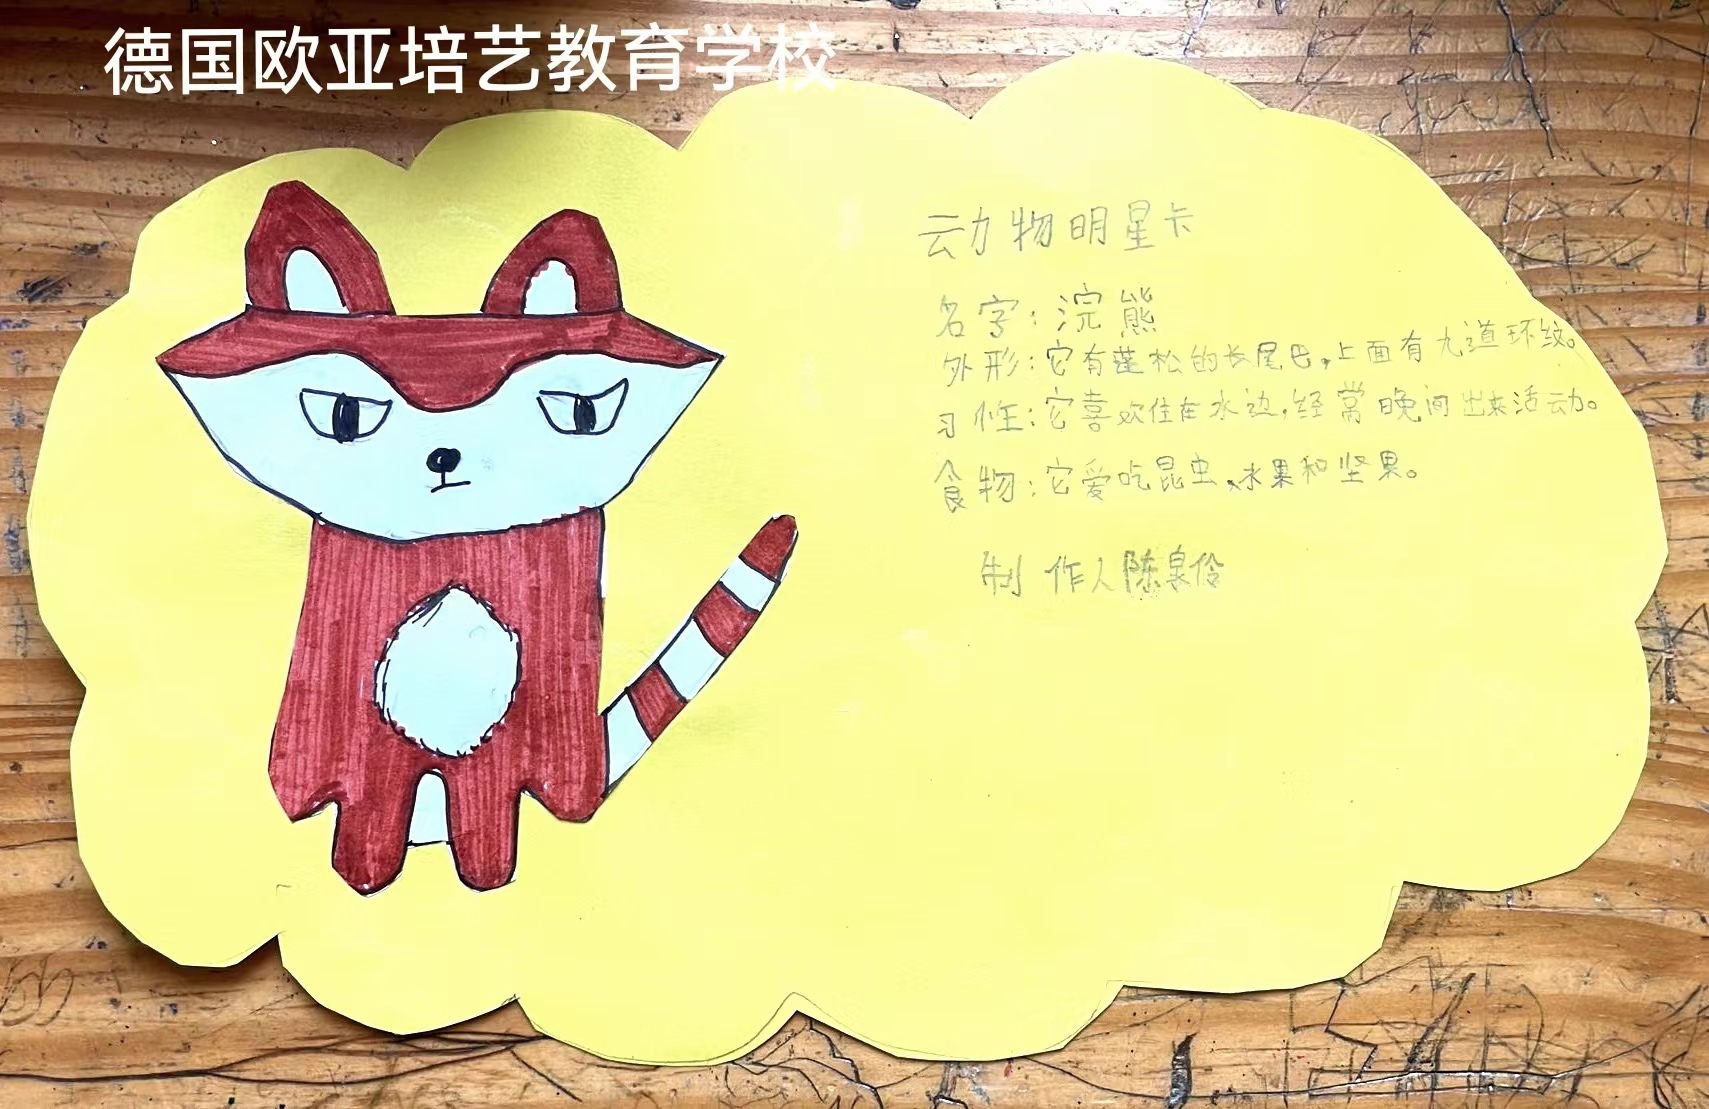 德国欧亚培艺教育学校
动物明星卡
名字：浣熊
外形：它有蓬松的长尾巴，上面有九道环纹。
习性：它喜欢住在水边，经常晚间出来活动。
食物：它爱吃昆虫、水果和坚果。
制作人陈泉伶